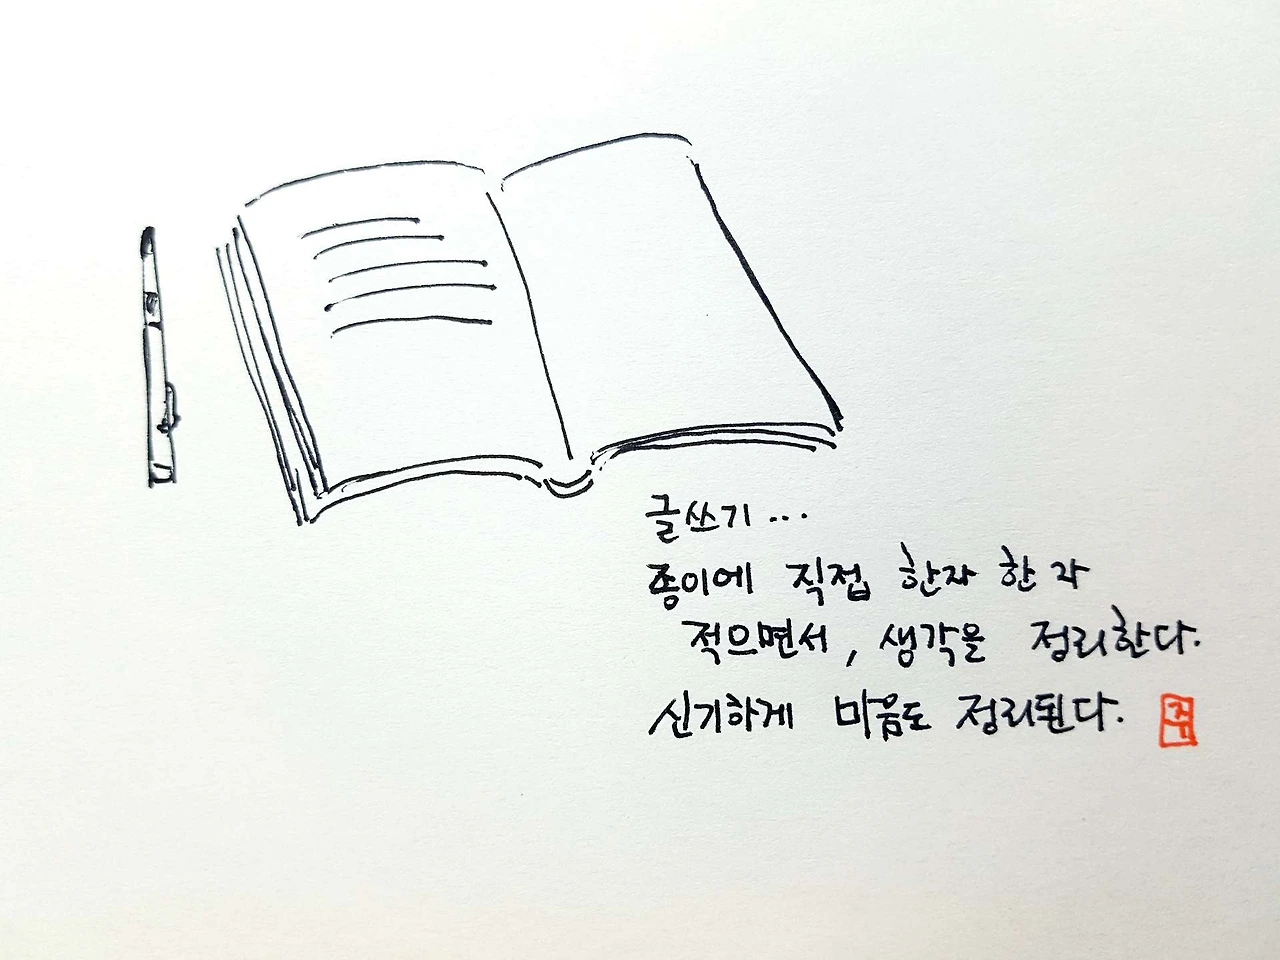 글쓰기...
종이에 직접 한자 한 자
적으면서, 생각을 정리한다.
신기하게 마음도 정리된다.